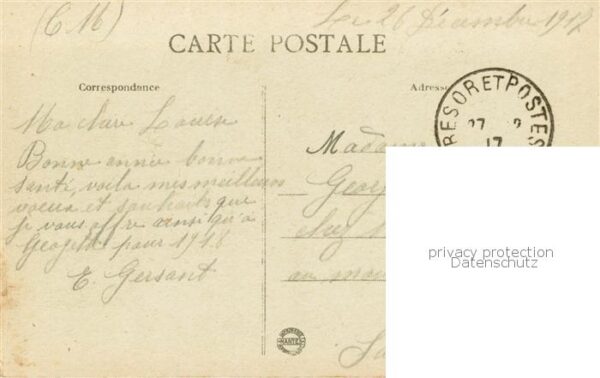 (C M)
Le 26 Décembre 1917
CARTE POSTALE
Correspondance
Adresse
TRESOR ET POSTES
27
17
Ma chere Louise
Bonne année bonne
santé, voila mes meilleurs
voeux et souhaits que
je vous offre ainsi qu'à
pour 1918
E. Gersant
Madame
Georg
chez
au
privacy protection
Datenschutz
NANTES